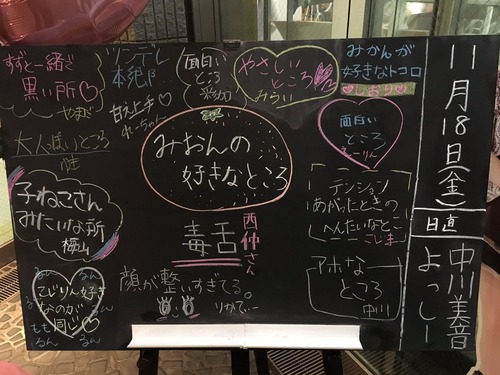 11月18日(金)
日直
中川美音
よっしー
みかんが
好きなトコロ
しおり
やさしいところ
みらい
面白い
ところ
彩加
ツンデレ
本郎
甘え上手
れーちゃん
すずと一緒で
黒い所
やまだ
大人っぽいところ
みおんの
好きなところ
面白い
ところ
まーりん
子ねこさん
みたいな所
横山
西仲さん
毒舌
テンション
あがったときの
へんたいなとこ
こじま
アホな
ところ
中川
顔が整いすぎてる。
りかてぃー
るん
こじりん好き
なのが
もも同じ
るん るん